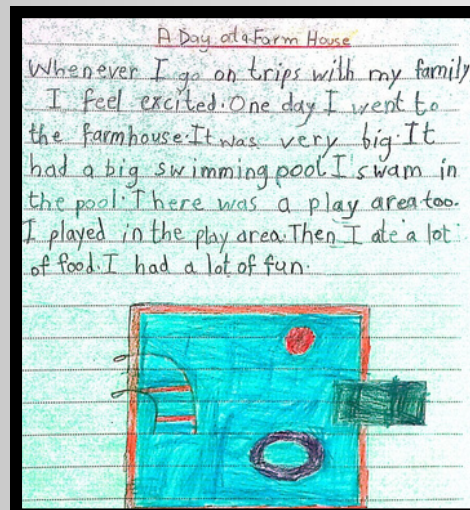 A Day at a Farm House
Whenever I go on trips with my family
I feel excited. One day I went to
the farmhouse. It was very big. It
had a big swimming pool I swam in
the pool. There was a play area too.
I played in the play area. Then I ate a lot
of food. I had a lot of fun.